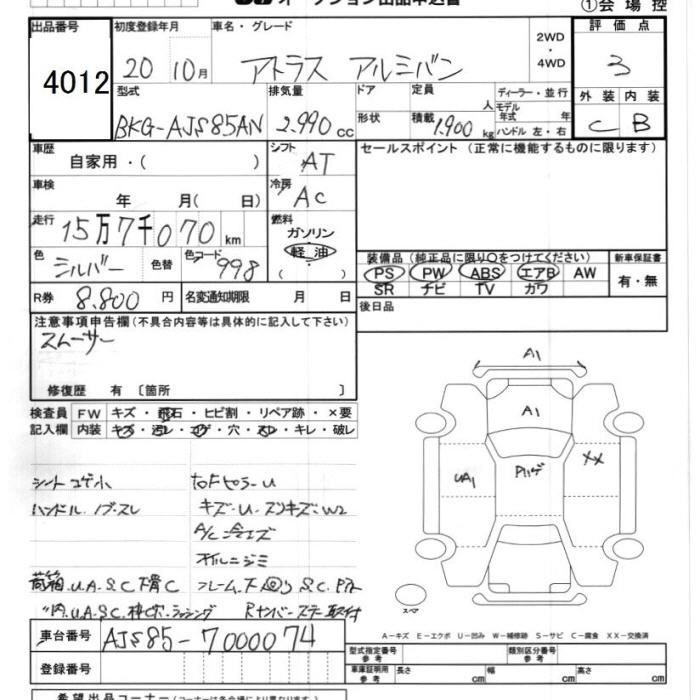 オークション出品申込書 ①会場控
出品番号 初度登録年月 車名・グレード 評価点
4012 20 10月 アトラス アルミバン 2WD・4WD 3
型式 排気量 ドア 定員 ディーラー・並行 外装 内装
BKG-AJS85AN 2.990cc 形状 人 積載 1.900kg モデル年式 年 ハンドル 左・右 C B
車歴 自家用・( ) シフト AT セールスポイント (正常に機能するものに限ります)
車検 年 月( 日) 冷房 AC
走行 15万7千070km 燃料 ガソリン 軽油 ( )
色 シルバー 色替 色コード 998
装備品(純正品に限り○をつけてください) 新車保証書
PS PW ABS エアB AW 有・無
SR ナビ TV カワ
R券 8.800円 名変通知期限 月 日 後日品
注意事項申告欄(不具合内容等は具体的に記入して下さい)
スムーサー
修復歴 有〔箇所 〕
検査員記入欄 FW キズ・飛石・ヒビ割・リペア跡・×要
内装 キズ・汚レ・コゲ・穴・スレ・キレ・破レ
A1
A1
UA1 XX
シートコゲ小
ハンドル.ノブスレ キズ・U・
荷箱.U.A.S.C 下骨C フレーム.下廻りS.C.
スペア
A-キズ E-エクボ U-凹み W-補修跡 S-サビ C-腐食 XX-交換済
車台番号 AJS85-7000074
型式指定番号 参考 類別区分番号 参考
登録番号 車庫証明用 参考 長さ cm 幅 cm 高さ cm
希望出品コーナー(コーナーは各会場により異なります)